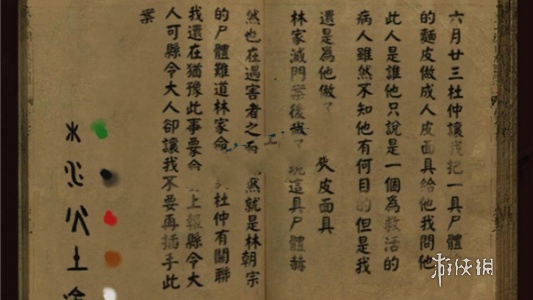 六月廿三杜仲讓我把一具尸體
的麵皮做成人皮面具給他我問他
此人是誰他只說是一個為救活的
病人雖然不知他有何目的但是我
還是為他做了 皮面具
林家滅門案後 現這具尸體赫
然也在遇害者之 然就是林朝宗
的尸體難道林家命 杜仲有關聯
我還在猶豫此事要 上報縣令大
人可縣令大人卻讓我不要再插手此
案
木水火土金
游侠网